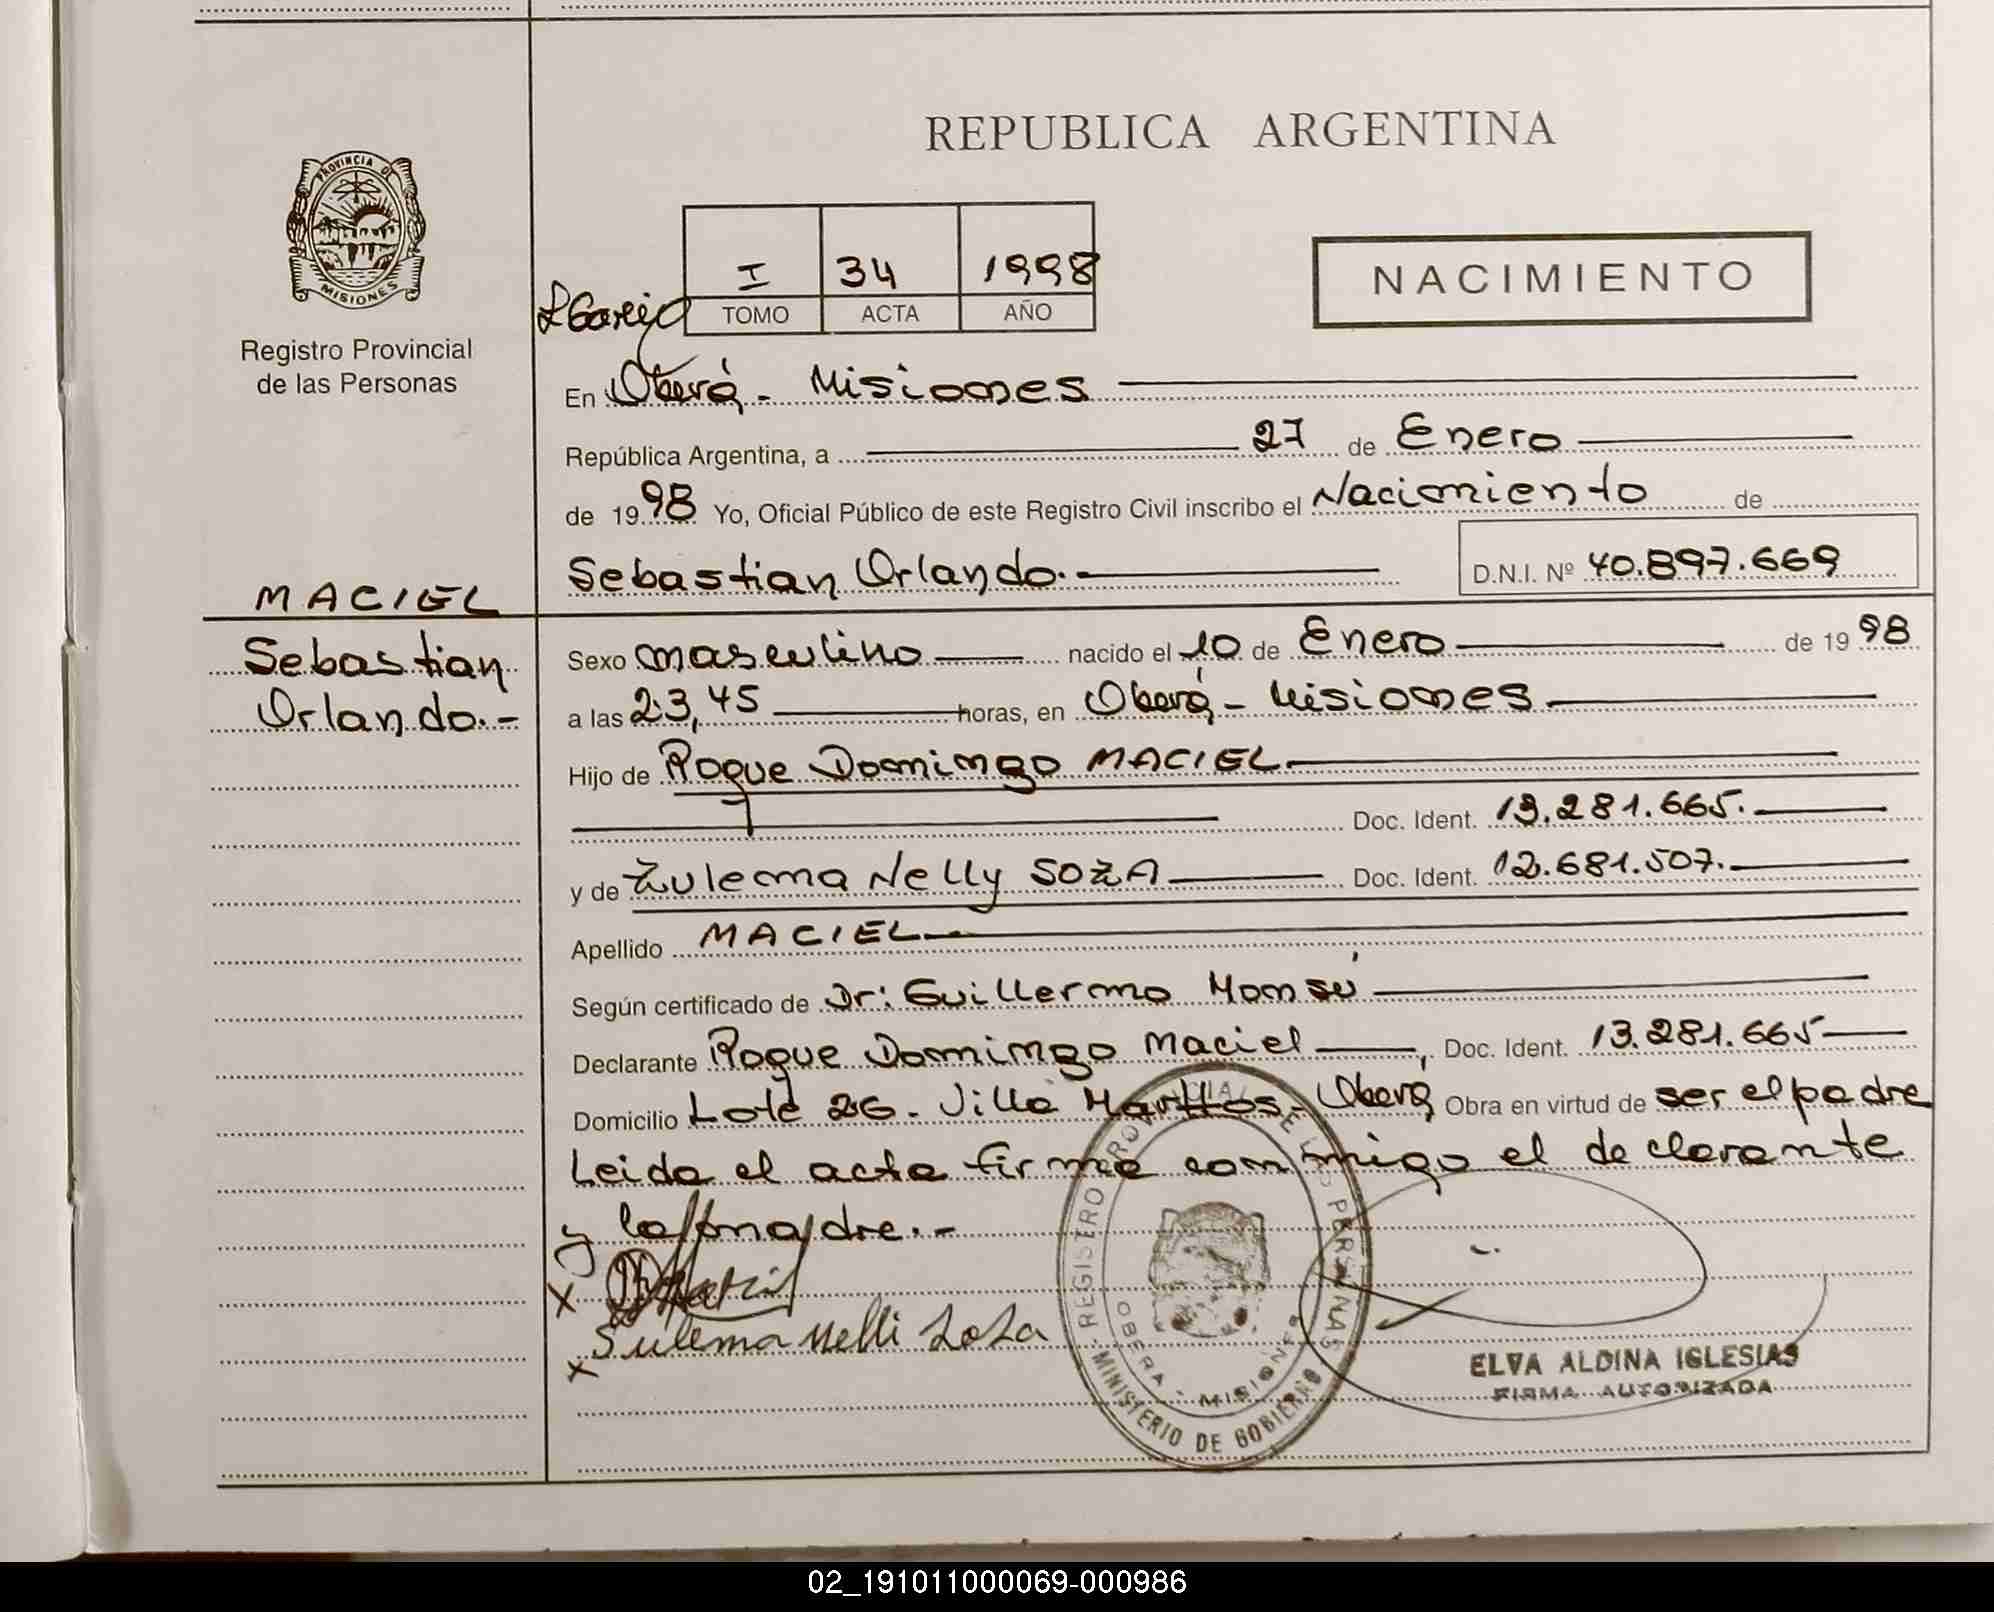 REPUBLICA ARGENTINA
PROVINCIA DE
MISIONES
Registro Provincial
de las Personas
I 34 1998
TOMO ACTA AÑO
NACIMIENTO
En Oberá - Misiones
República Argentina, a 27 de Enero
de 1998 Yo, Oficial Público de este Registro Civil inscribo el Nacimiento de
Sebastian Orlando.- D.N.I. Nº 40.897.669
MACIEL
Sebastian
Orlando.-
Sexo masculino nacido el 10 de Enero de 1998
a las 23,45 horas, en Oberá - Misiones
Hijo de Roque Domingo MACIEL
Doc. Ident. 13.281.665.
y de Zulema Nelly SOZA Doc. Ident. 12.681.507.
Apellido MACIEL
Según certificado de Dr: Guillermo Monsú
Declarante Roque Domingo Maciel, Doc. Ident. 13.281.665
Domicilio Lote 26. Villa Oberá Obra en virtud de ser el padre
Leida el acta firma conmigo el declarante
y la madre.-
x
x Sulema Nelli Soza
REGISTRO PROVINCIAL DE LAS PERSONAS
OBERA - MISIONES
MINISTERIO DE GOBIERNO
ELVA ALDINA IGLESIAS
FIRMA AUTORIZADA
02_191011000069-000986